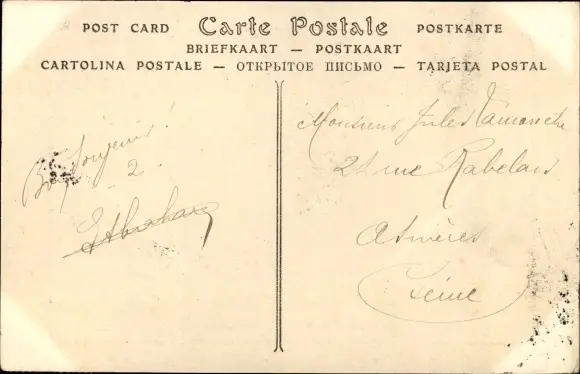 POST CARD Carte Postale POSTKARTE
BRIEFKAART — POSTKAART
CARTOLINA POSTALE — ОТКРЫТОЕ ПИСЬМО — TARJETA POSTAL
Bon Souvenir!
2
Monsieur Jules
rue Rabelais
Asnières
Seine